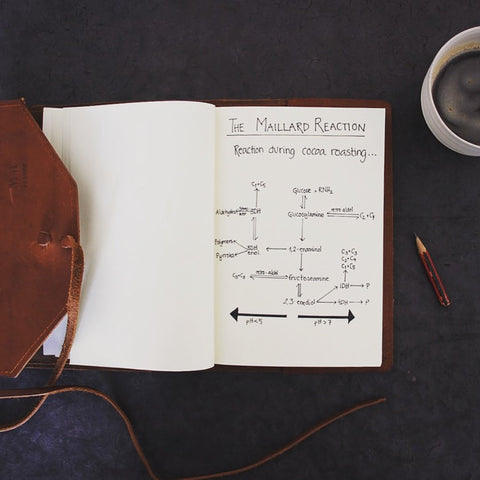 THE MAILLARD REACTION
Reaction during cocoa roasting...
C₁+C₅
Glucose + RNH₂
Aldehydes
3DH
Glucosylamine
retro aldol
C₂+C₄
Polymers
Pyrroles
3DH
enol
1,2-enaminol
C₃+C₃
retro-aldol
Fructoseamine
2,3 enediol
1DH
P
4DH
P
pH<5
pH>7